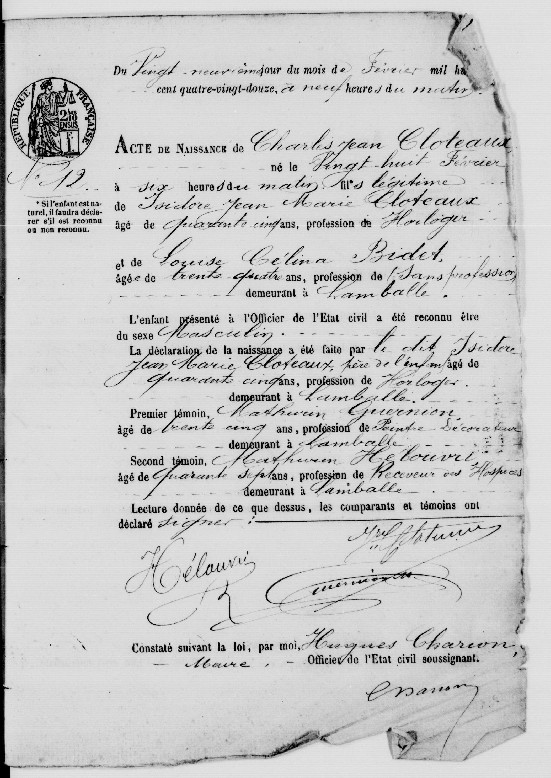 Du Vingt-neuvième jour du mois de Février mil hu
cent quatre-vingt-douze, à neuf heures du matin.
RÉPUBLIQUE FRANÇAISE
N° 12
ACTE DE NAISSANCE de Charles Jean Cloteaux
né le Vingt huit Février
à six heures du matin, fils légitime
* Si l'enfant est na-
turel, il faudra décla-
rer s'il est reconnu
ou non reconnu.
de Isidore Jean Marie Cloteaux
âgé de quarante cinq ans, profession de Horloger
et de Louise Célina Bidet,
âgée de trente quatre ans, profession de (Sans profession)
demeurant à Lamballe.
L'enfant présenté à l'Officier de l'Etat civil a été reconnu être
du sexe Masculin.
La déclaration de la naissance a été faite par le dit Isidore
Jean Marie Cloteaux, père de l'enfant âgé de
quarante cinq ans, profession de Horloger
demeurant à Lamballe.
Premier témoin, Mathurin Guernion
âgé de trente cinq ans, profession de Peintre-Décorateur
demeurant à Lamballe
Second témoin, Mathurin Hélouvri
âgé de quarante sept ans, profession de Receveur des Hospices
demeurant à Lamballe
Lecture donnée de ce que dessus, les comparants et témoins ont
déclaré signer :
Hélouvri
Constaté suivant la loi, par moi, Hugues Charion,
Maire, Officier de l'Etat civil soussignant.